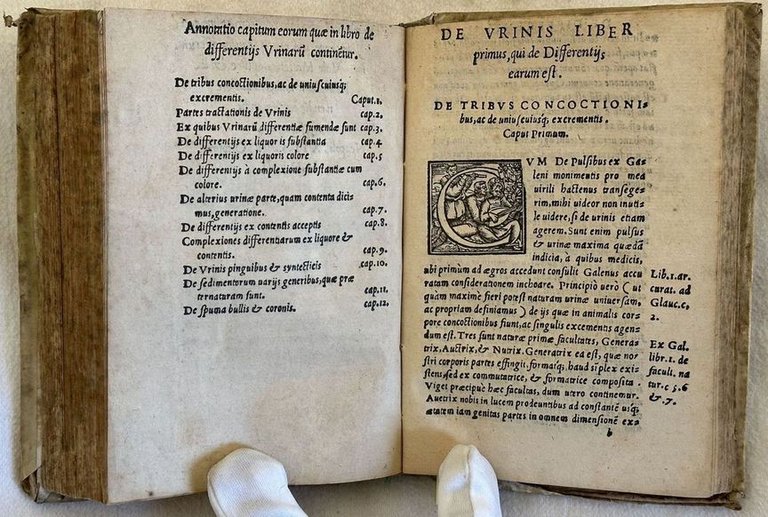 Annotatio capitum eorum quæ in libro de
differentijs Vrinarũ continẽtur.
De tribus concoctionibus, ac de uniuscuiusq;
excrementis. Caput.1.
Partes tractationis de Vrinis cap.2.
Ex quibus Vrinarũ differentiæ sumendæ sunt cap.3.
De differentijs ex liquoris substantia cap.4
De differentijs ex liquoris colore cap.5
De differentijs à complexione substantiæ cum
colore. cap.6.
De alterius urinæ parte, quam contenta dici
mus, generatione. cap.7.
De differentijs ex contentis acceptis cap.8.
Complexiones differentiarum ex liquore &
contentis. cap.9.
De Vrinis pinguibus & syntecticis cap.10.
De sedimentorum uarijs generibus, quæ præ
ter naturam sunt. cap.11.
De spuma bullis & coronis. cap.12.
DE VRINIS LIBER
primus, qui de Differentijs
earum est.
DE TRIBVS CONCOCTIONI-
bus, ac de uniuscuiusq; excrementis.
Caput Primum.
CVM De Pulsibus ex Ga-
leni monimentis pro me
uirili hactenus transege-
rim, mihi uideor non inuti-
le uidere, si de urinis etiam
agerem. Sunt enim pulsus
& urinæ maxima quædã
indicia, à quibus medicis,
ubi primùm ad ægros accedunt consulit Galenus accu
ratam considerationem inchoare. Principiò uerò (ut
quàm maximè fieri potest naturam urinæ uniuersam,
ac propriam definiamus) de ijs quæ in animalis cor-
pore concoctionibus fiunt, ac singulis excementis agen-
dum est. Tres sunt naturæ primæ facultates, Genera-
trix, Auctrix, & Nutrix. Generatrix ea est, quæ no-
stri corporis partes effingit, formatq; haud sĩplex exi-
stens, sed ex commutatrice, & formatrice composita.
Viget præcipuè hæc facultas, dum utero continemur.
Auctrix nobis in lucem prodeuntibus ad constantẽ usq;
ætatem iam genitas partes in omnem dimensionẽ ex-
b
Lib.1.ar.
curat. ad
Glauc.c,
2.
Ex Gal.
libr.1.de
facult. na
tur.c 5.6
&.7.